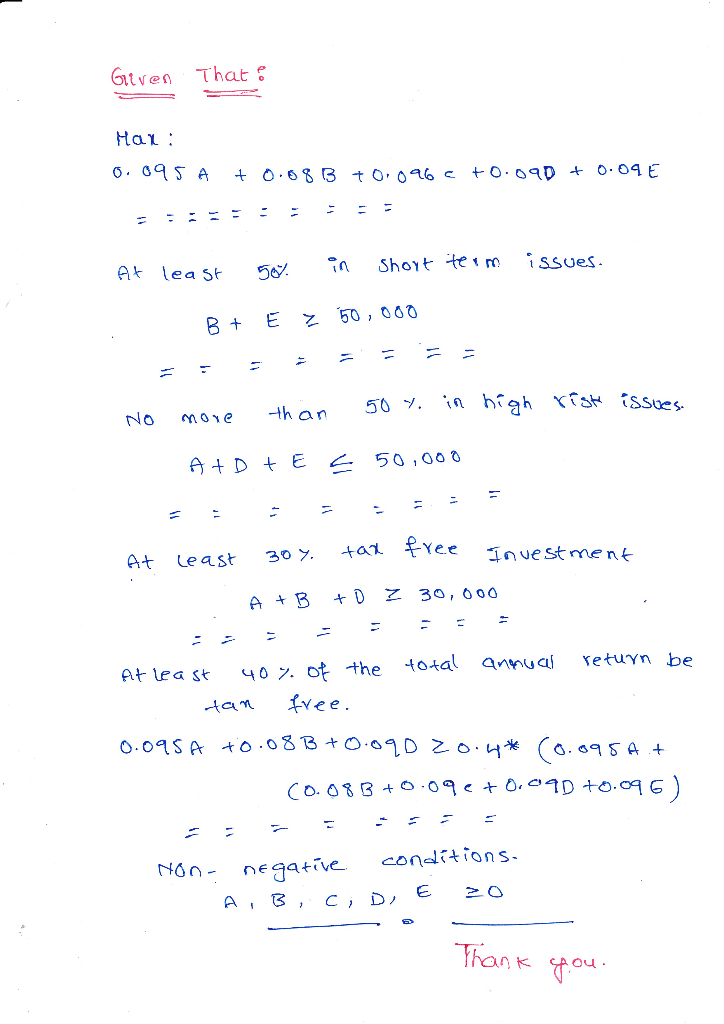 Given That :
Max :
0.095 A + 0.08 B + 0.096 C + 0.09D + 0.09 E
= = = = = = = = = =
At least 50% in short term issues.
B + E ≥ 50,000
= = = = = = = =
No more than 50 %. in high risk issues.
A + D + E ≤ 50,000
= = = = = = = =
At least 30 %. tax free Investment
A + B + D ≥ 30,000
= = = = = = = =
At least 40 %. of the total annual return be
tax free.
0.095A + 0.08B + 0.09D ≥ 0.4* (0.095A +
(0.08B + 0.09C + 0.09D + 0.09E)
= = = = = = = =
Non- negative conditions.
A, B, C, D, E ≥ 0
Thank you.